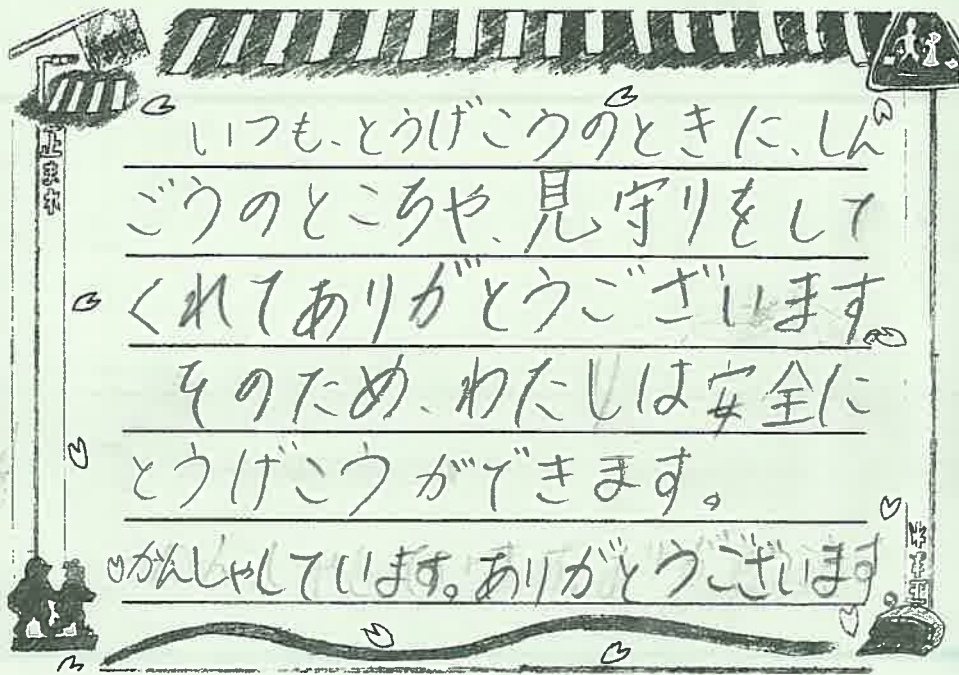 止まれ
いつも、とうげこうのときに、しん
ごうのところや、見守りをして
くれてありがとうございます。
そのため、わたしは安全に
とうげこうができます。
かんしゃしています。ありがとうございます